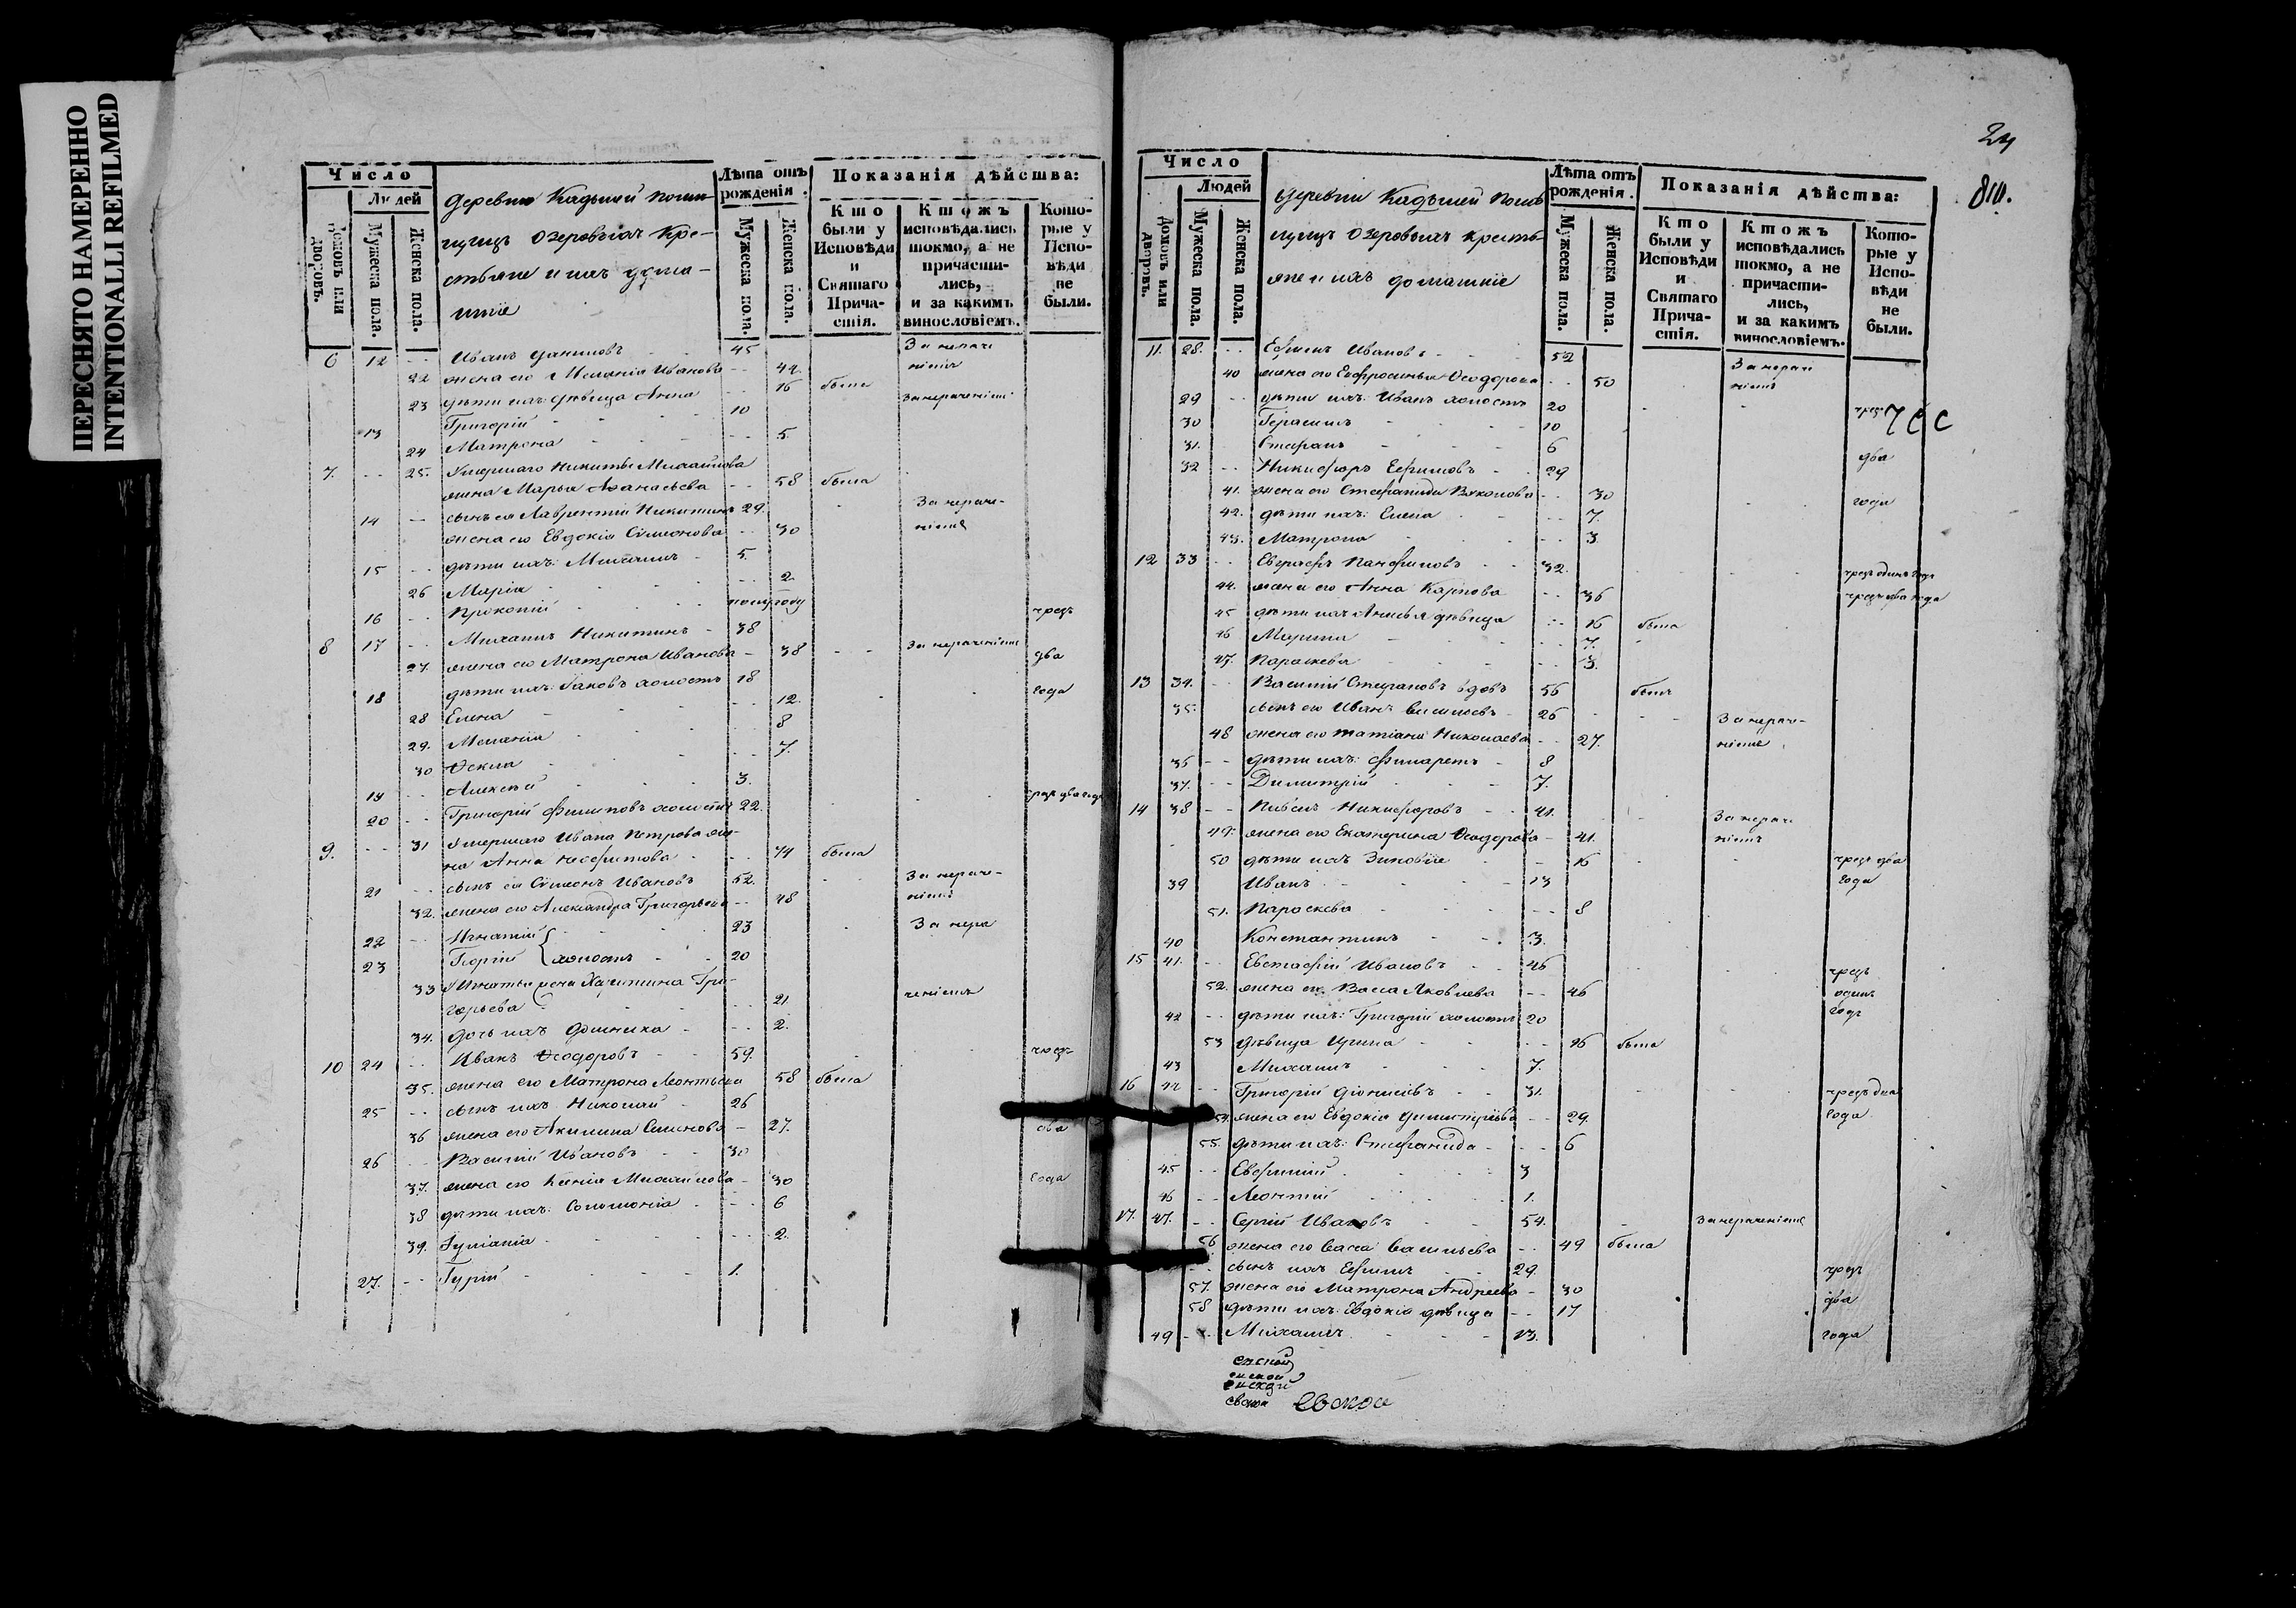 ПЕРЕСНЯТО НАМЕРЕННО
INTENTIONALLI REFILMED
24
810.
Число
Людей
Домовъ или дворовъ.
Мужеска пола.
Женска пола.
Деревни Кадышей поми-
щицъ Озеровыхъ кре-
стьяне и ихъ дома-
шніе
Лѣта отъ рожденія.
Мужеска пола.
Женска пола.
Показанія дѣйства:
Кто были у Исповѣди и Святаго Причастія.
Ктожъ исповѣдались токмо, а не причастились, и за какимъ винословіемъ.
Которые у Исповѣди не были.
6 12 -- Иванъ Даниловъ 45 За нераче
22 жена его Меланія Иванова -- 44. ніемъ
23 дѣти ихъ: дѣвица Анна -- 16 была
13 Григорій 10 За нераченіемъ
24 Матрона -- 5.
7. -- 25. Умершаго Никиты Михайлова
жена Марья Аѳанасьева -- 58 была
14 -- сынъ ея Лаврентій Никитинъ 29. За нераче-
жена его Евдокія Сѵмеонова -- 30 ніемъ
15 -- дѣти ихъ: Михаилъ 5.
26 Марія -- 2.
16 -- Прокопій полугоду
8 17 -- Михаилъ Никитинъ 38 За нераченіемъ чрезъ
27. жена его Матрона Иванова -- 38 два
18 дѣти ихъ: Іаковъ холостъ 18 года
28 Елена -- 12.
29. Меланія 8
30 Ѳекла -- 7.
19 -- Алексѣй 3.
20 -- Григорій Филиповъ холостъ 22. чрезъ два года
9. -- 31 Умершаго Ивана Петрова же-
на Анна -- 74 была
21 -- сынъ ея Сѵмеонъ Ивановъ 52. За нераче-
32. жена его Александра Григорьева -- 48 ніемъ
22 -- Игнатій 23 За нера
23 Георгій } холосты 20
33 Игнатья жена Харитина Гри-
горьева -- 21. ченіемъ
34. дочь ихъ Домника -- 2.
10 24 -- Иванъ Ѳеодоровъ 59. чрезъ
35. жена его Матрона Леонтьева 58 была
25 -- сынъ ихъ Николай 26
36 жена его Акилина Семенова -- 27. два
26 -- Василій Ивановъ 30
37. жена его Ксенія Михайлова -- 30 года
38 дѣти ихъ: Соломонія -- 6
39. Іуліанія -- 2.
27. -- Гурій 1.
Число
Людей
Домовъ или дворовъ.
Мужеска пола.
Женска пола.
Деревни Кадышей поми-
щицъ Озеровыхъ кресть-
яне и ихъ домашніе
Лѣта отъ рожденія.
Мужеска пола.
Женска пола.
Показанія дѣйства:
Кто были у Исповѣди и Святаго Причастія.
Ктожъ исповѣдались токмо, а не причастились, и за какимъ винословіемъ.
Которые у Исповѣди не были.
11. 28. -- Ефимъ Ивановъ 52 За нераче
40 жена его Евфросинья Ѳеодорова -- 50 ніемъ
29 -- дѣти ихъ: Иванъ холостъ 20 чрезъ
30 Герасимъ 10
31. Стефанъ 6
32 -- Никифоръ Ефимовъ 29 два
41. жена его Стефанида -- 30
42. дѣти ихъ: Елена -- 7. года
43. Матрона -- 3
12 33 -- Евграфъ Панфиловъ 32. чрезъ одинъ годъ
44. жена его Анна Карпова -- 36 чрезъ два года
45 дѣти ихъ Анисья дѣвица -- 16 была
46 Марина -- 7.
47. Параскева -- 3.
13 34. -- Василій Стефановъ вдовъ 56 былъ
35. сынъ его Иванъ Васильевъ 26 За нераче-
48 жена его Татіана Николаева -- 27. ніемъ
36 -- дѣти ихъ: Филаретъ 8
37. Димитрій 7.
14 38 -- Никифоровъ 41. За нераче
49. жена его Екатерина Ѳеодорова -- 41. ніемъ
50 дѣти ихъ Зиновія -- 16 чрезъ два
39 Иванъ 13 года
51. Параскева -- 8
40 Константинъ 3.
15 41. -- Евстафій Ивановъ 46 чрезъ
52. жена его Васса Яковлева -- 46 одинъ
42 -- дѣти ихъ: Григорій холостъ 20 годъ
53 дѣвица Ирина -- 16 была
43 Михаилъ 7.
16 44 -- Григорій Діонисіевъ 31. чрезъ два
54. жена его Евдокія Димитріева -- 29. года
55. дѣти ихъ: Стефанида -- 6
45 -- Евфимій 3
46 -- Леонтій 1.
17. 47. -- Сергій Ивановъ 54. За нераченіемъ
56 жена его Васса Васильева -- 49 была
-- сынъ ихъ Ефимъ 29. чрезъ
57. жена его Матрона Андреева -- 30
58 дѣти ихъ: Евдокія дѣвица -- 17 два
49 -- Михаилъ 13. года